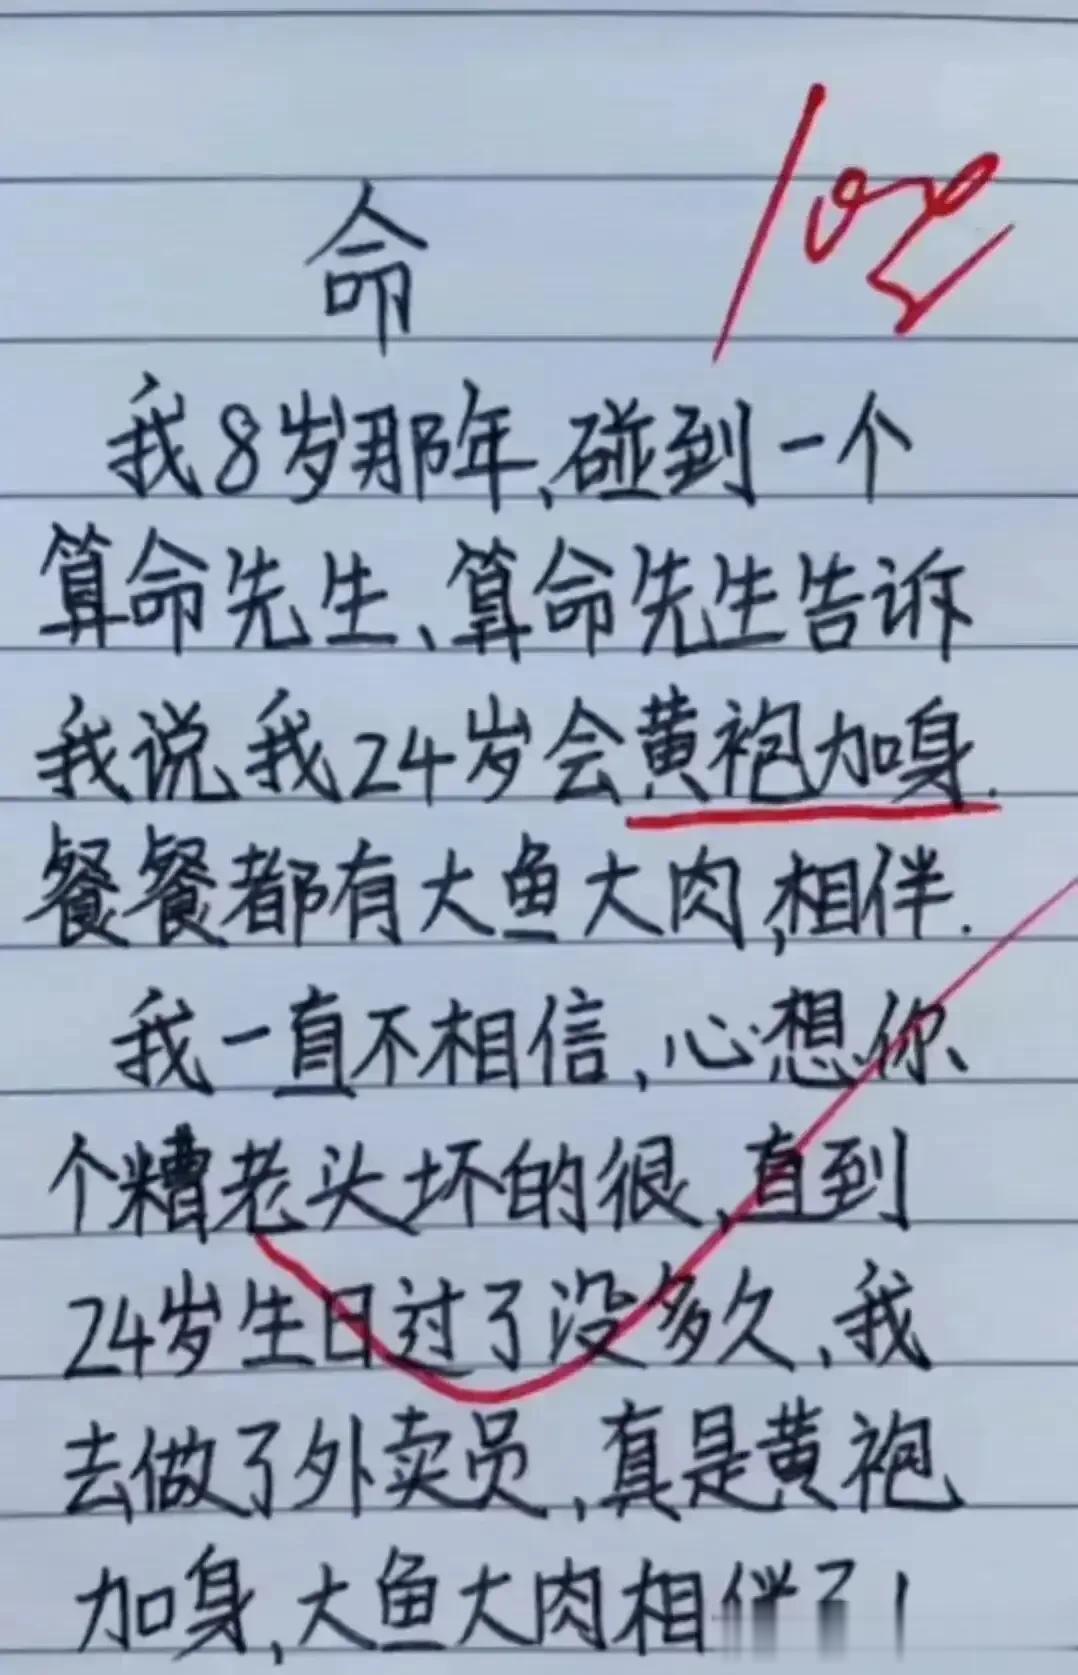 命
我8岁那年、碰到一个
算命先生、算命先生告诉
我说我24岁会黄袍加身.
餐餐都有大鱼大肉,相伴.
我一直不相信,心想你
个糟老头坏的很,直到
24岁生日过了没多久、我
去做了外卖员,真是黄袍
加身,大鱼大肉相伴了!